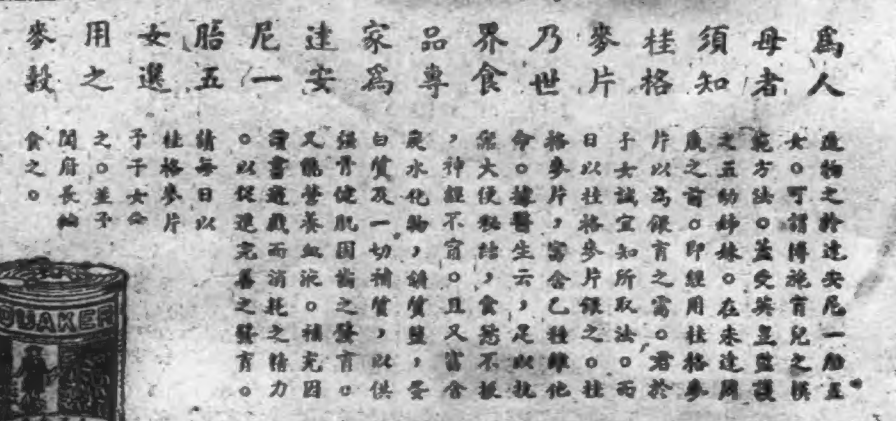 爲人
母者
須知
桂格
麥片
乃世
界食
品專
家爲
達安
尼一
胎五
女選
用之
麥穀
造物之於達安尼一胎五
女。可謂博施育兒之模
範方法。蓋受英皇監護
之五幼姊妹。在未達周
歲之前。即經用桂格麥
片以爲餵育之需。君於
子女誠宜知所取法。而
日以桂格麥片餵之。桂
格麥片，富含乙種維他
命。據醫生云，足以抗
禦大便秘結，食慾不振
，神經不甯。且又富含
炭水化物，鑛質鹽，蛋
白質及一切補質，以供
強骨健肌固齒之發育。
又能營養血液。補充因
讀書遊戲而消耗之精力
。以促進完善之發育。
請每日以
桂格麥片
予子女食
之。並予
閤府長幼
食之。
QUAKER